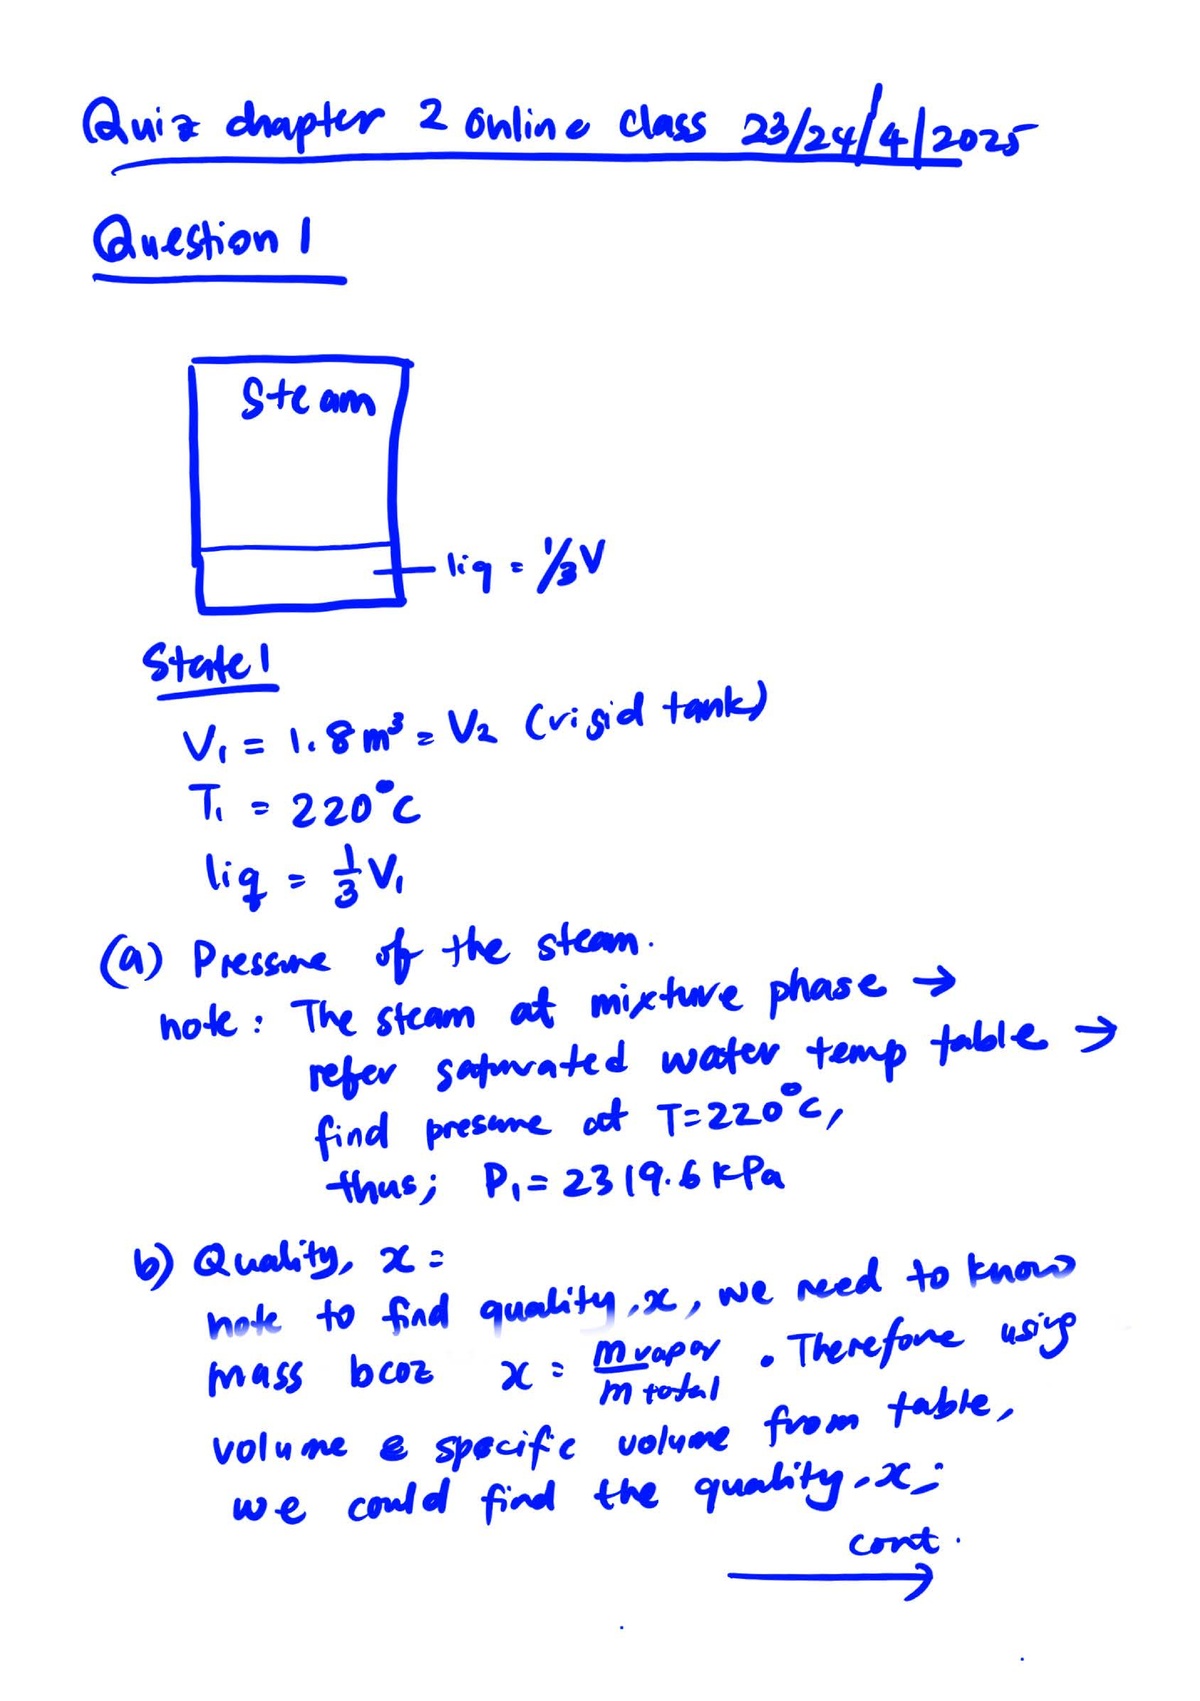 Quiz chapter 2 online class 23/24/4/2025
Question 1
Steam
liq = 1/3 V
State 1
V₁ = 1.8 m³ = V₂ (rigid tank)
T₁ = 220°C
liq = 1/3 V₁
(a) Pressure of the steam.
note : The steam at mixture phase →
refer saturated water temp table →
find pressure at T=220°C,
thus; P₁ = 2319.6 kPa
b) Quality, x =
note to find quality, x, we need to know
mass bcoz x = m vapor / m total . Therefore using
volume & specific volume from table,
we could find the quality, x;
cont.